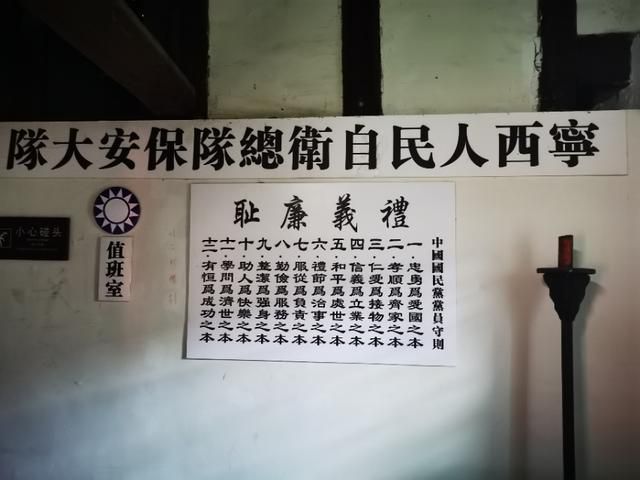 寧西人民自衛總隊保安大隊
禮義廉耻
中國國民黨黨員守則
一·忠勇爲愛國之本
二·孝順爲齊家之本
三·仁愛爲接物之本
四·信義爲立業之本
五·和平爲處世之本
六·禮節爲治事之本
七·服從爲負責之本
八·勤儉爲服務之本
九·整潔爲强身之本
十·助人爲快樂之本
十一·學問爲濟世之本
十二·有恒爲成功之本
值班室
小心碰头